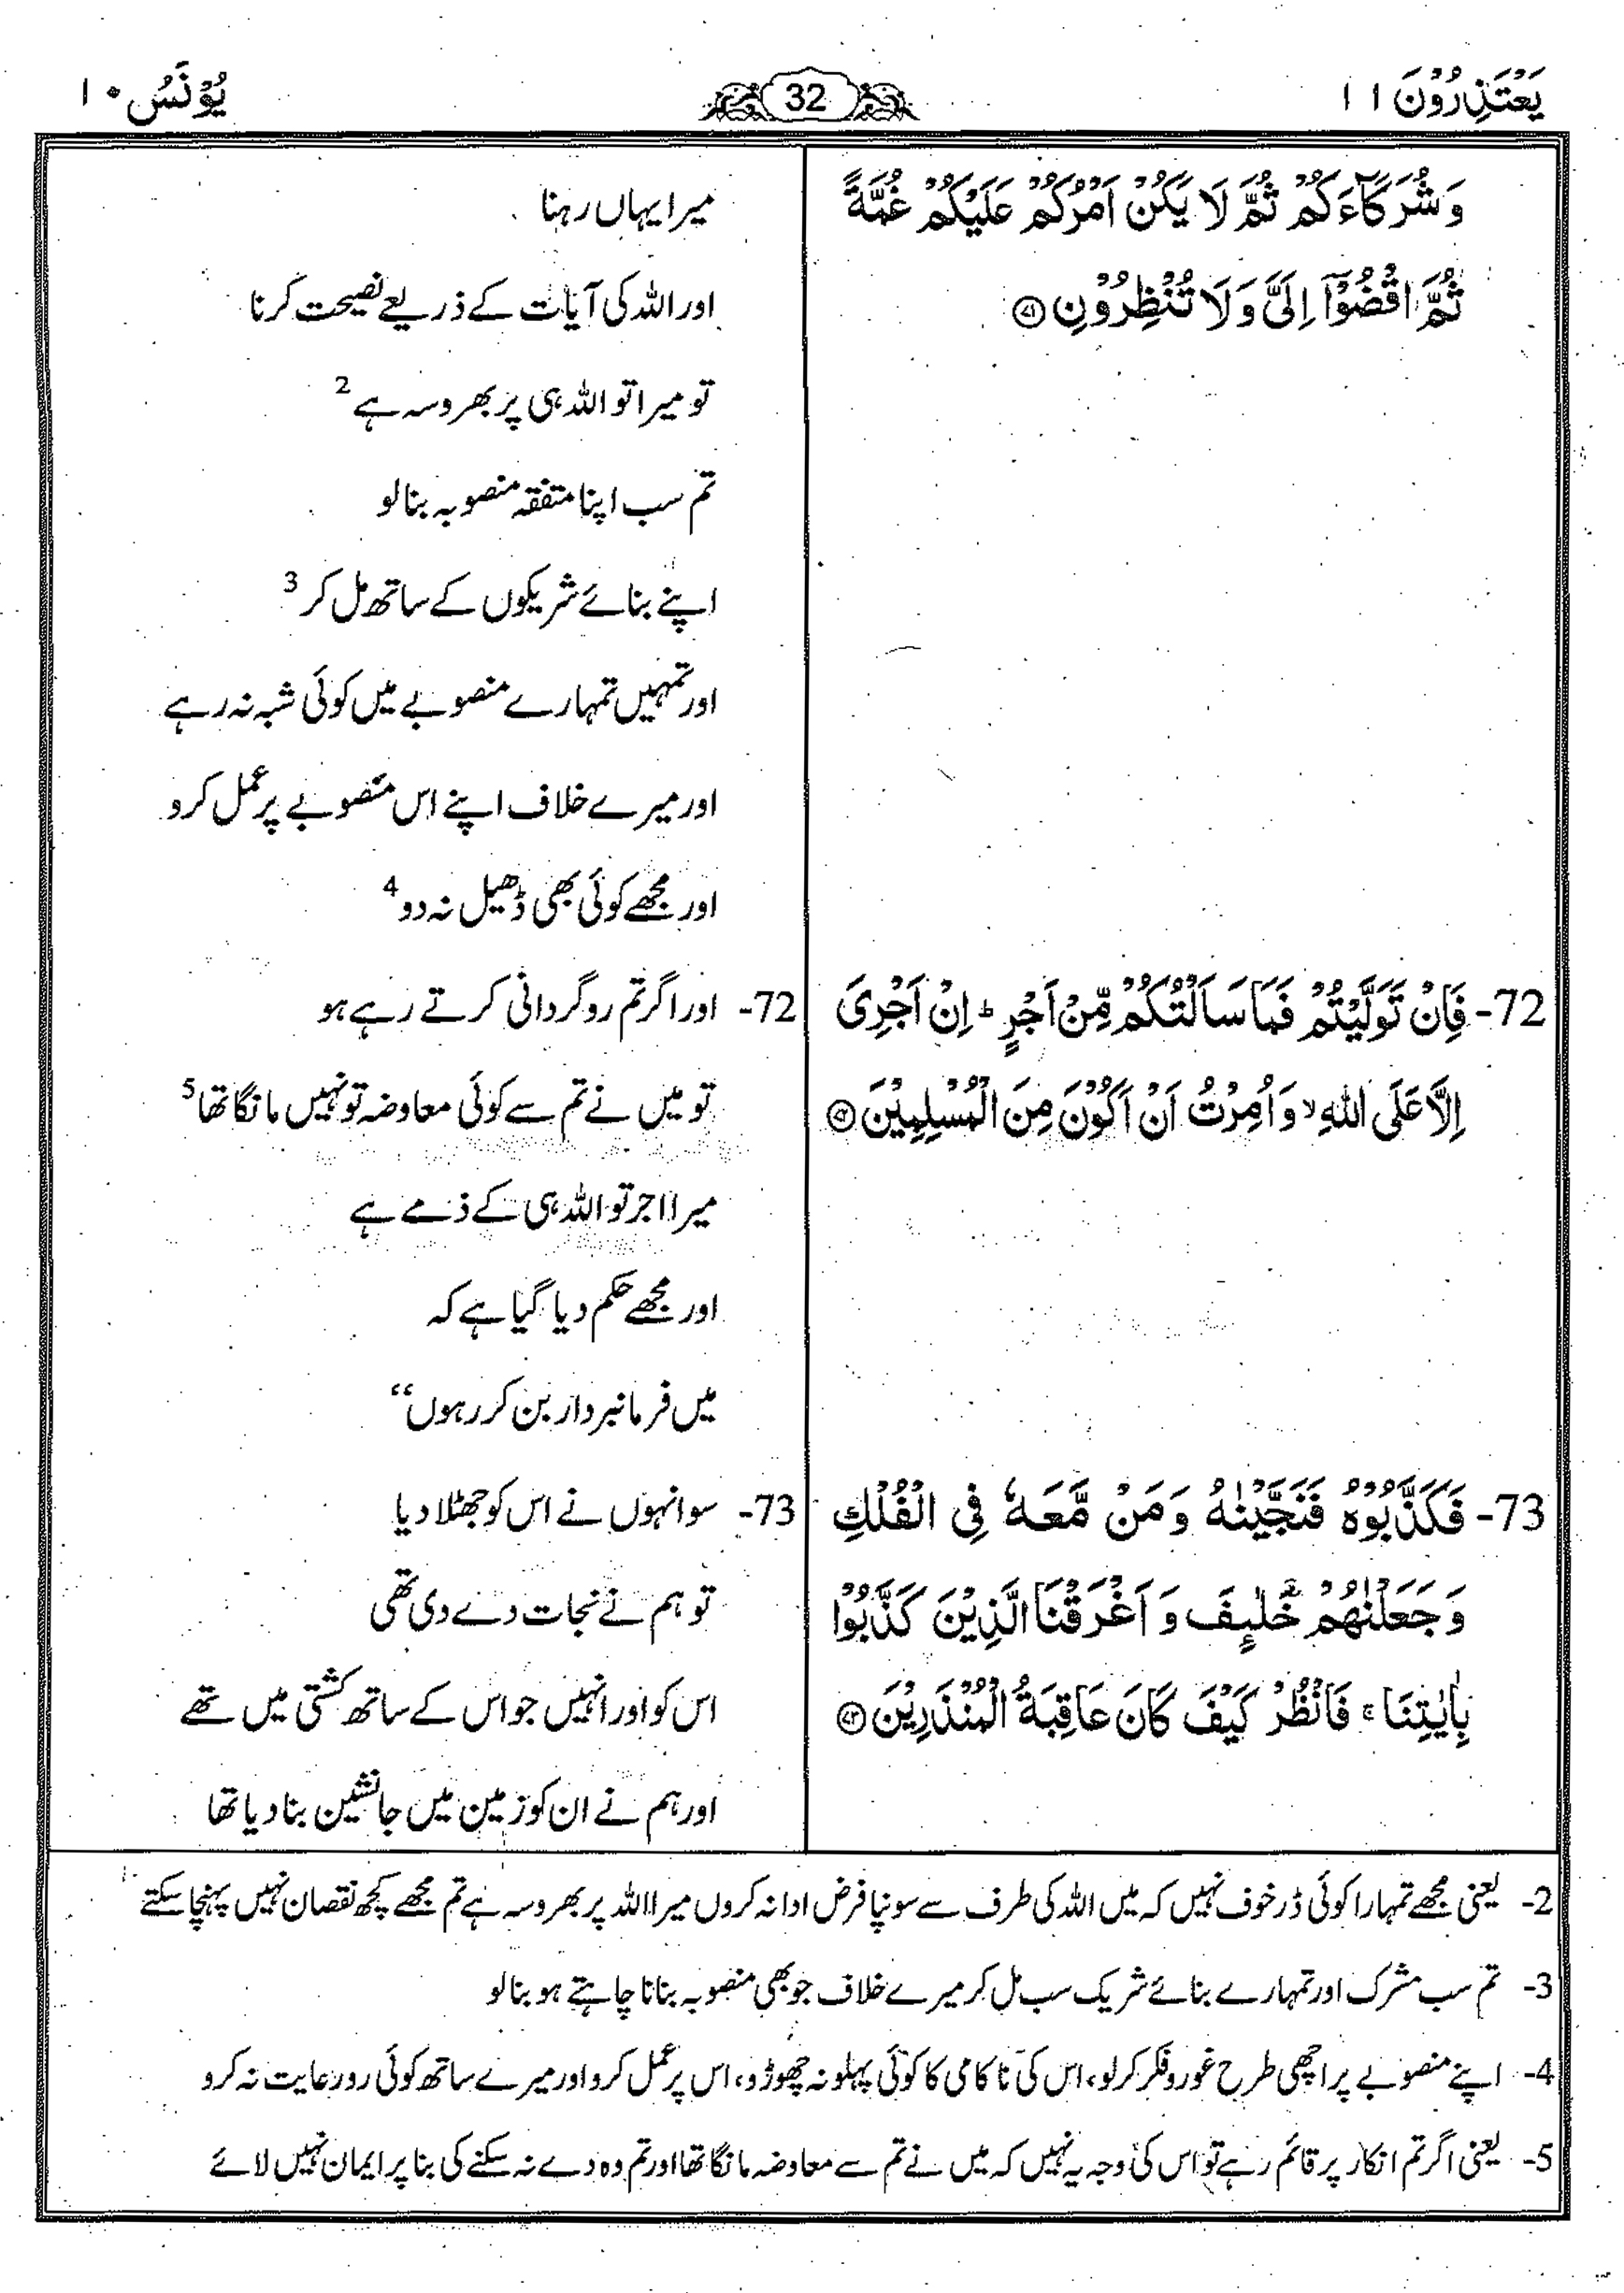 یَعْتَذِرُوْنَ ۱۱
32
یُوْنُس ۱۰
وَشُرَكَآءَكُمْ ثُمَّ لَا یَكُنْ اَمْرُكُمْ عَلَیْكُمْ غُمَّةً
ثُمَّ اقْضُوْۤا اِلَیَّ وَلَا تُنْظِرُوْنِ ﴿۷۱﴾
72- فَاِنْ تَوَلَّیْتُمْ فَمَا سَاَلْتُكُمْ مِّنْ اَجْرٍ ؕ اِنْ اَجْرِیَ
اِلَّا عَلَی اللّٰهِ ۙ وَاُمِرْتُ اَنْ اَكُوْنَ مِنَ الْمُسْلِمِیْنَ ﴿۷۲﴾
73- فَكَذَّبُوْهُ فَنَجَّیْنٰهُ وَمَنْ مَّعَهٗ فِی الْفُلْكِ
وَجَعَلْنٰهُمْ خَلٰٓئِفَ وَاَغْرَقْنَا الَّذِیْنَ كَذَّبُوْا
بِاٰیٰتِنَا ۚ فَانْظُرْ كَیْفَ كَانَ عَاقِبَةُ الْمُنْذَرِیْنَ ﴿۷۳﴾
میرا یہاں رہنا
اور اللہ کی آیات کے ذریعے نصیحت کرنا
تو میرا تو اللہ ہی پر بھروسہ ہے 2
تم سب اپنا متفقہ منصوبہ بنا لو
اپنے بنائے شریکوں کے ساتھ مل کر 3
اور تمہیں تمہارے منصوبے میں کوئی شبہ نہ رہے
اور میرے خلاف اپنے اس منصوبے پر عمل کرو
اور مجھے کوئی بھی ڈھیل نہ دو 4
72- اور اگر تم روگردانی کرتے رہے ہو
تو میں نے تم سے کوئی معاوضہ تو نہیں مانگا تھا 5
میرا اجر تو اللہ ہی کے ذمے ہے
اور مجھے حکم دیا گیا ہے کہ
میں فرمانبردار بن کر رہوں“
73- سو انہوں نے اس کو جھٹلا دیا
تو ہم نے نجات دے دی تھی
اس کو اور انہیں جو اس کے ساتھ کشتی میں تھے
اور ہم نے ان کو زمین میں جانشین بنا دیا تھا
2- یعنی مجھے تمہارا کوئی ڈر خوف نہیں کہ میں اللہ کی طرف سے سونپا فرض ادا نہ کروں میرا اللہ پر بھروسہ ہے تم مجھے کچھ نقصان نہیں پہنچا سکتے
3- تم سب مشرک اور تمہارے بنائے شریک سب مل کر میرے خلاف جو بھی منصوبہ بنانا چاہتے ہو بنا لو
4- اپنے منصوبے پر اچھی طرح غور و فکر کر لو، اس کی ناکامی کا کوئی پہلو نہ چھوڑو، اس پر عمل کرو اور میرے ساتھ کوئی رو رعایت نہ کرو
5- یعنی اگر تم انکار پر قائم رہے تو اس کی وجہ یہ نہیں کہ میں نے تم سے معاوضہ مانگا تھا اور تم وہ دے نہ سکنے کی بنا پر ایمان نہیں لائے